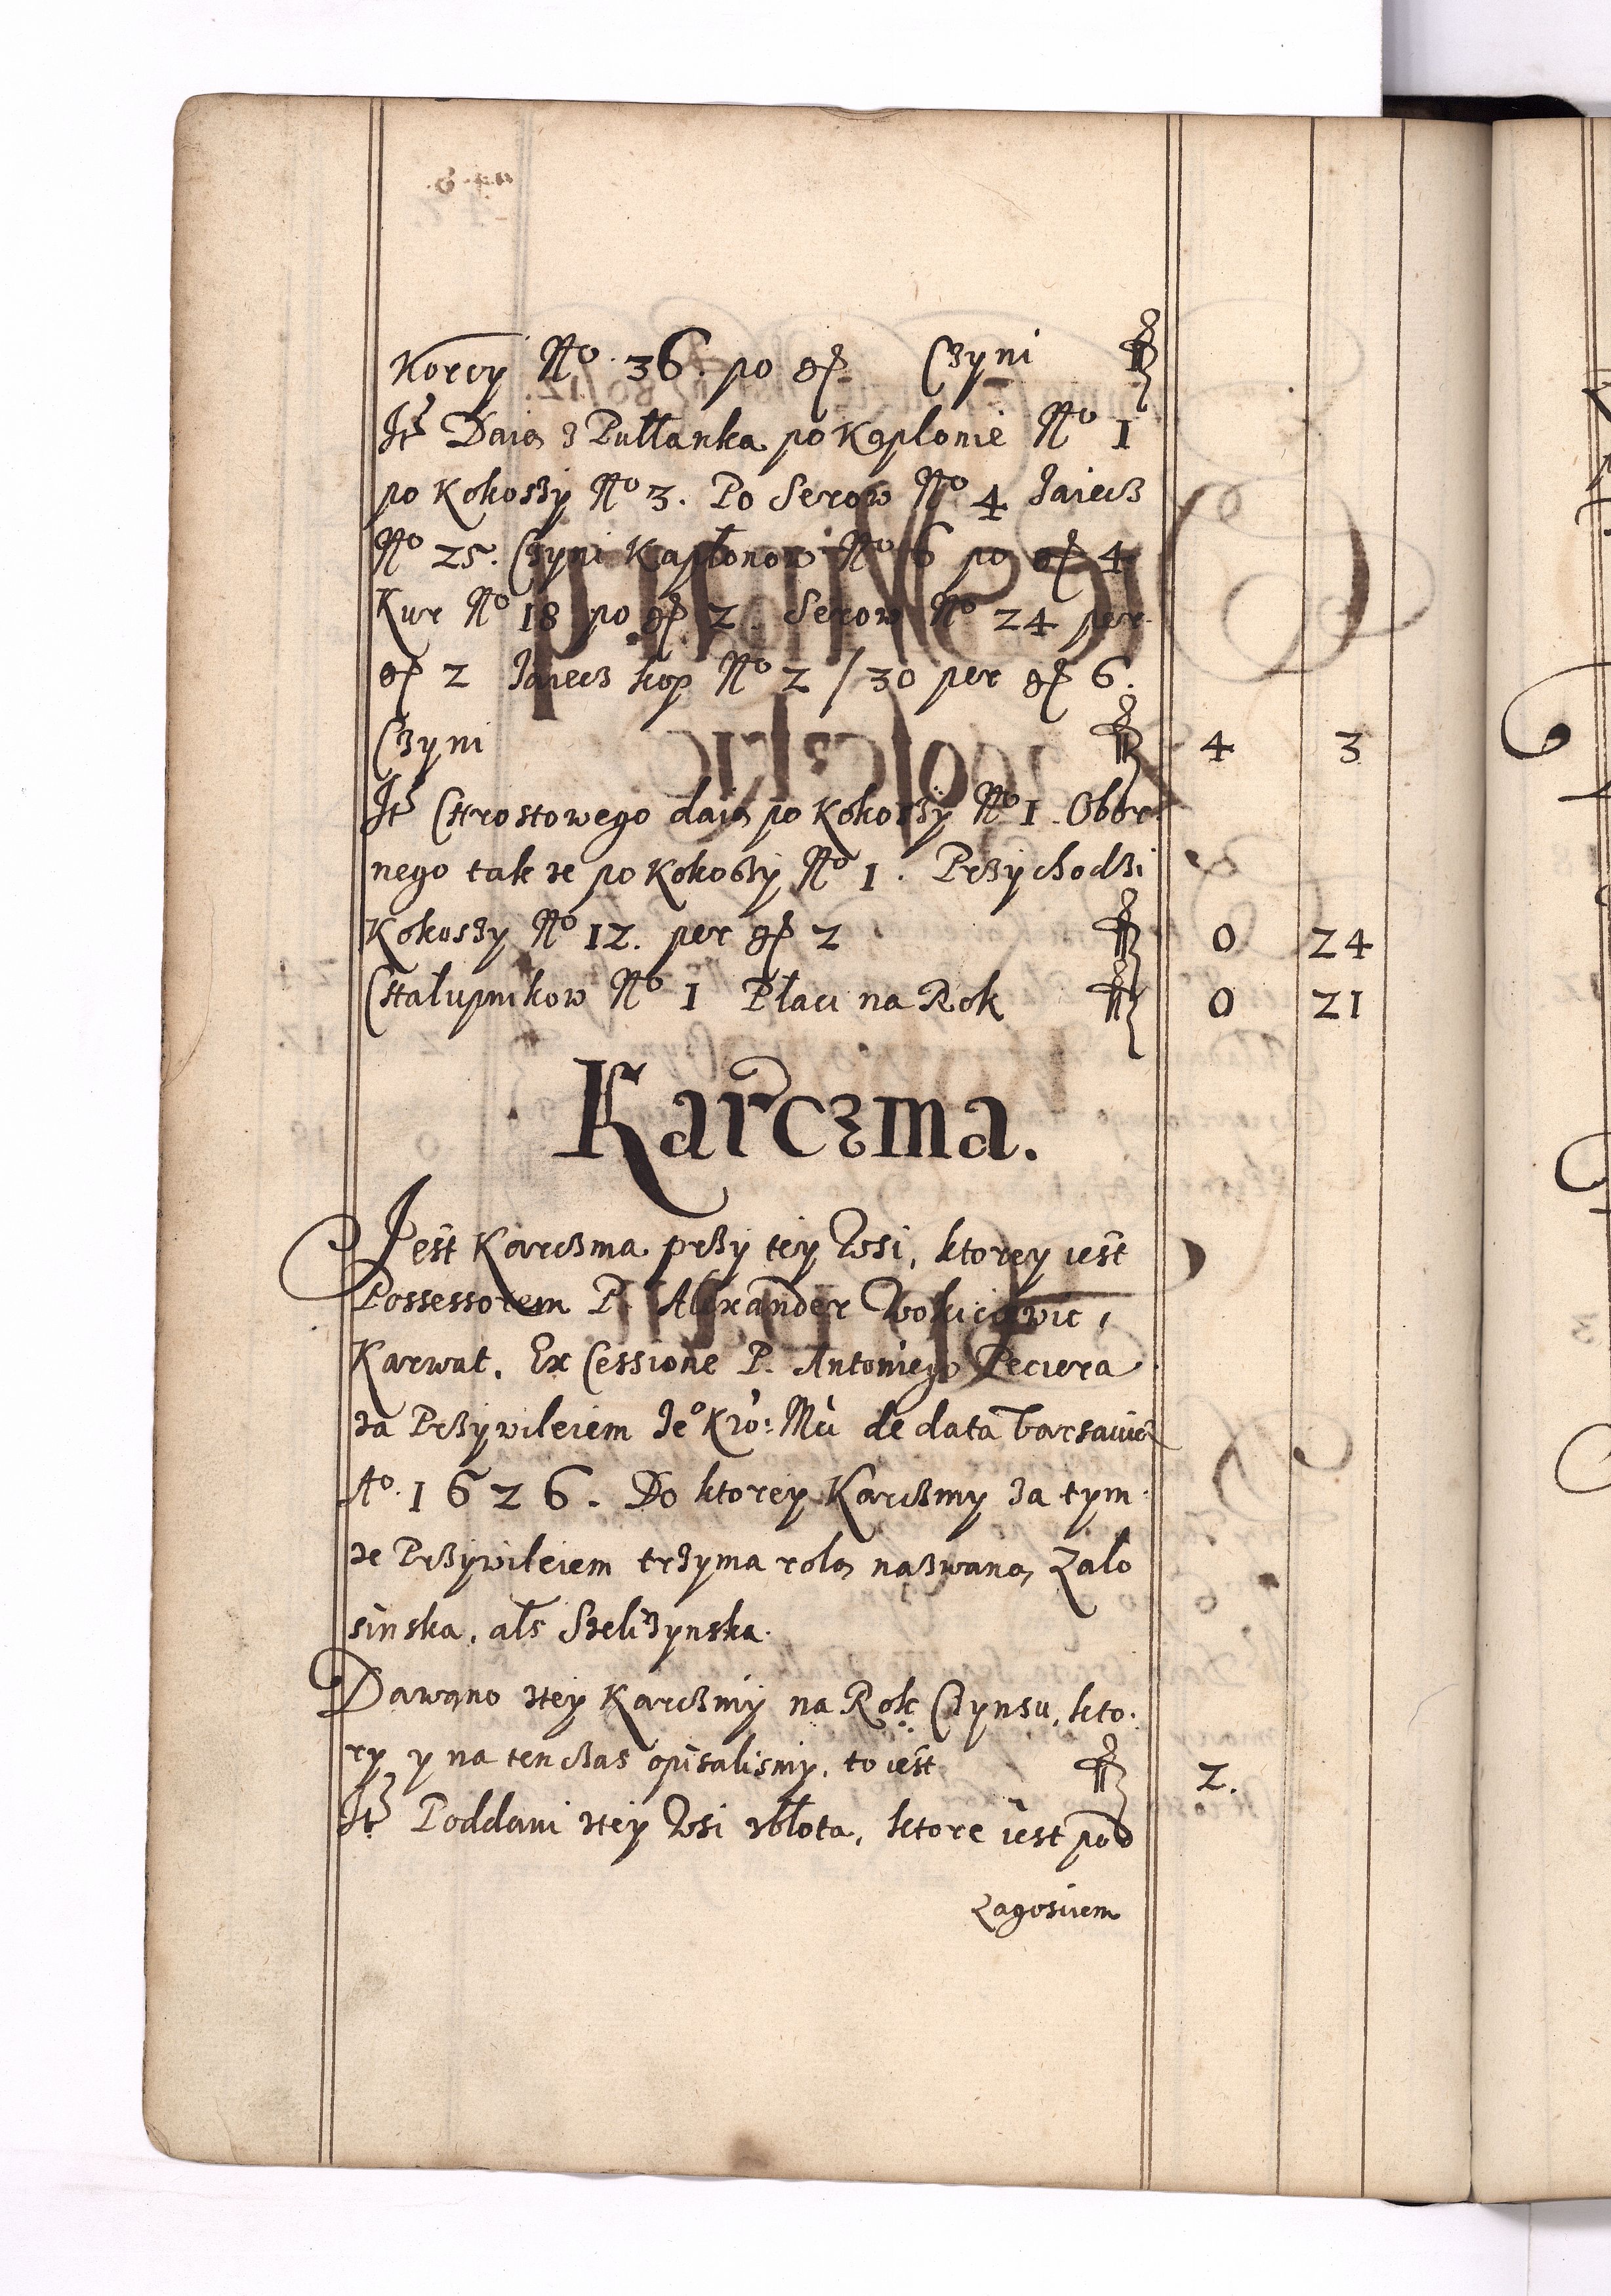 Korcy No. 36. po gr Czyni fl
Itē Daią z Pułłanka po Kapłonie No 1
po Kokoszy No 3. Po Serow No 4 Jaiecz
No 25. Czyni Kapłonow No 6 po gr 4
Kur No 18 po gr 2. Serow No 24 per
gr 2 Jaiecz kop No 2/30 per gr 6.
Czyni fl 4 3
Itē Chrostowego daią po Kokoszy No 1. Obor
nego takze po Kokoszy No 1. Przychodzi
Kokoszy No 12. per gr 2 fl 0 24
Chałupnikow No 1 Płaci na Rok fl 0 21
Karczma.
Jest Karczma przy tey Wsi, ktorey iest
Possessorem P. Alexander
Karwat. Ex Cessione P. Antoniego Peciera
za Przywileiem Jeo Kro: Mci de data Varsauiæ
Ao. 1626. Do ktorey Karczmy za tym
ze Przywileiem trzyma rolą nazwaną Zalo
sinska, als Szelizynska.
Dawano ztey Karczmy na Rok Czynsu, kto.
ry y na tenczas opisalismy, to iest fl 2.
Itē Poddani ztey Wsi zbłota, ktore iest pod
Zagosciem